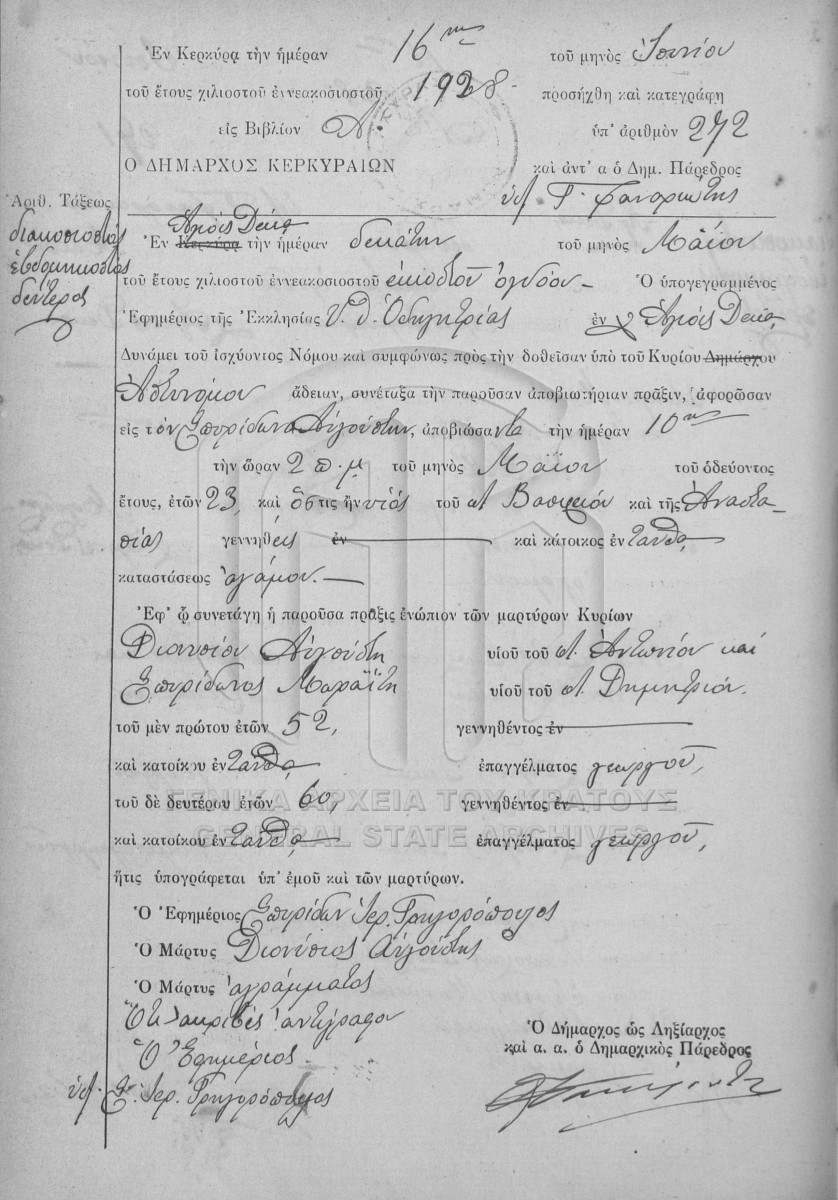 Ἐν Κερκύρᾳ τὴν ἡμέραν 16ην τοῦ μηνὸς Ἰουνίου
τοῦ ἔτους χιλιοστοῦ ἐννεακοσιοστοῦ 1928 προσήχθη καὶ κατεγράφη
εἰς Βιβλίον Α. ὑπ' ἀριθμὸν 272
Ο ΔΗΜΑΡΧΟΣ ΚΕΡΚΥΡΑΙΩΝ καὶ ἀντ' α ὁ Δημ. Πάρεδρος
ὑπ. Γ. Φαναριώτης
Ἀριθ. Τάξεως
διακοσιοστὸς
ἑβδομηκοστὸς
δεύτερος
Ἁγίοις Δέκα
Ἐν Κερκύρᾳ τὴν ἡμέραν δεκάτην τοῦ μηνὸς Μαΐου
τοῦ ἔτους χιλιοστοῦ ἐννεακοσιοστοῦ εἰκοστοῦ ὀγδόου Ὁ ὑπογεγραμμένος
Ἐφημέριος τῆς Ἐκκλησίας Υ. Θ. Ὁδηγητρίας ἐν Ἁγίοις Δέκα
Δυνάμει τοῦ ἰσχύοντος Νόμου καὶ συμφώνως πρὸς τὴν δοθεῖσαν ὑπὸ τοῦ Κυρίου Δημάρχου
Ἀστυνόμου ἄδειαν, συνέταξα τὴν παροῦσαν ἀποβιωτήριαν πρᾶξιν, ἀφορῶσαν
εἰς τὸν Σπυρίδωνα Αὐγούστην, ἀποβιώσαντα τὴν ἡμέραν 10ην
τὴν ὥραν 2 π. μ. τοῦ μηνὸς Μαΐου τοῦ ὁδεύοντος
ἔτους, ἐτῶν 23, καὶ ὅστις ἦν υἱὸς τοῦ Βασιλείου καὶ τῆς Ἀναστα-
σίας γεννηθεὶς ἐν καὶ κάτοικος ἐν ταῦθα
καταστάσεως ἀγάμου.
Ἐφ' ᾧ συνετάγη ἡ παροῦσα πρᾶξις ἐνώπιον τῶν μαρτύρων Κυρίων
Διονυσίου Αὐγούστη υἱοῦ τοῦ Ἀντωνίου καὶ
Σπυρίδωνος Μωραΐτη υἱοῦ τοῦ Δημητρίου.
τοῦ μὲν πρώτου ἐτῶν 52, γεννηθέντος ἐν
καὶ κατοίκου ἐν ταῦθα, ἐπαγγέλματος γεωργοῦ,
τοῦ δὲ δευτέρου ἐτῶν 60, γεννηθέντος ἐν
ΓΕΝΙΚΑ ΑΡΧΕΙΑ ΤΟΥ ΚΡΑΤΟΥΣ
GENERAL STATE ARCHIVES
καὶ κατοίκου ἐν ταῦθα, ἐπαγγέλματος γεωργοῦ,
ἥτις ὑπογράφεται ὑπ' ἐμοῦ καὶ τῶν μαρτύρων.
Ὁ Ἐφημέριος Σπυρίδων Ἱερ. Γρηγορόπουλος
Ὁ Μάρτυς Διονύσιος Αὐγούστης
Ὁ Μάρτυς ἀγράμματος
Ὅτι ἀκριβὲς ἀντίγραφον
Ὁ Ἐφημέριος
ὑπ. Σ. Ἱερ. Γρηγορόπουλος
Ὁ Δήμαρχος ὡς Ληξίαρχος
καὶ α. α. ὁ Δημαρχικὸς Πάρεδρος